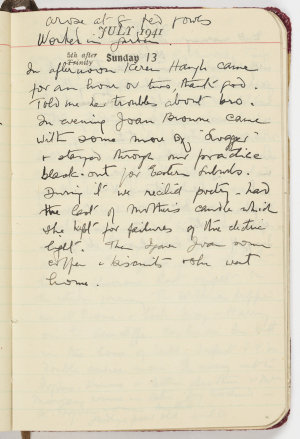 arose at 8 fed fowls
JULY 1941
Worked in garden.
5th after
Trinity
Sunday 13
In afternoon Keren Haugh came
for an hour or two, thank god.
Told me her troubles about
In evening Joan Browne came
with some more of "
& stayed through our practice
black-out for Eastern Suburbs.
During it we recited poetry, had
the last of Mother's candle which
she kept for failures of the electric
light. Then gave Joan some
coffee & biscuits & she went
home.